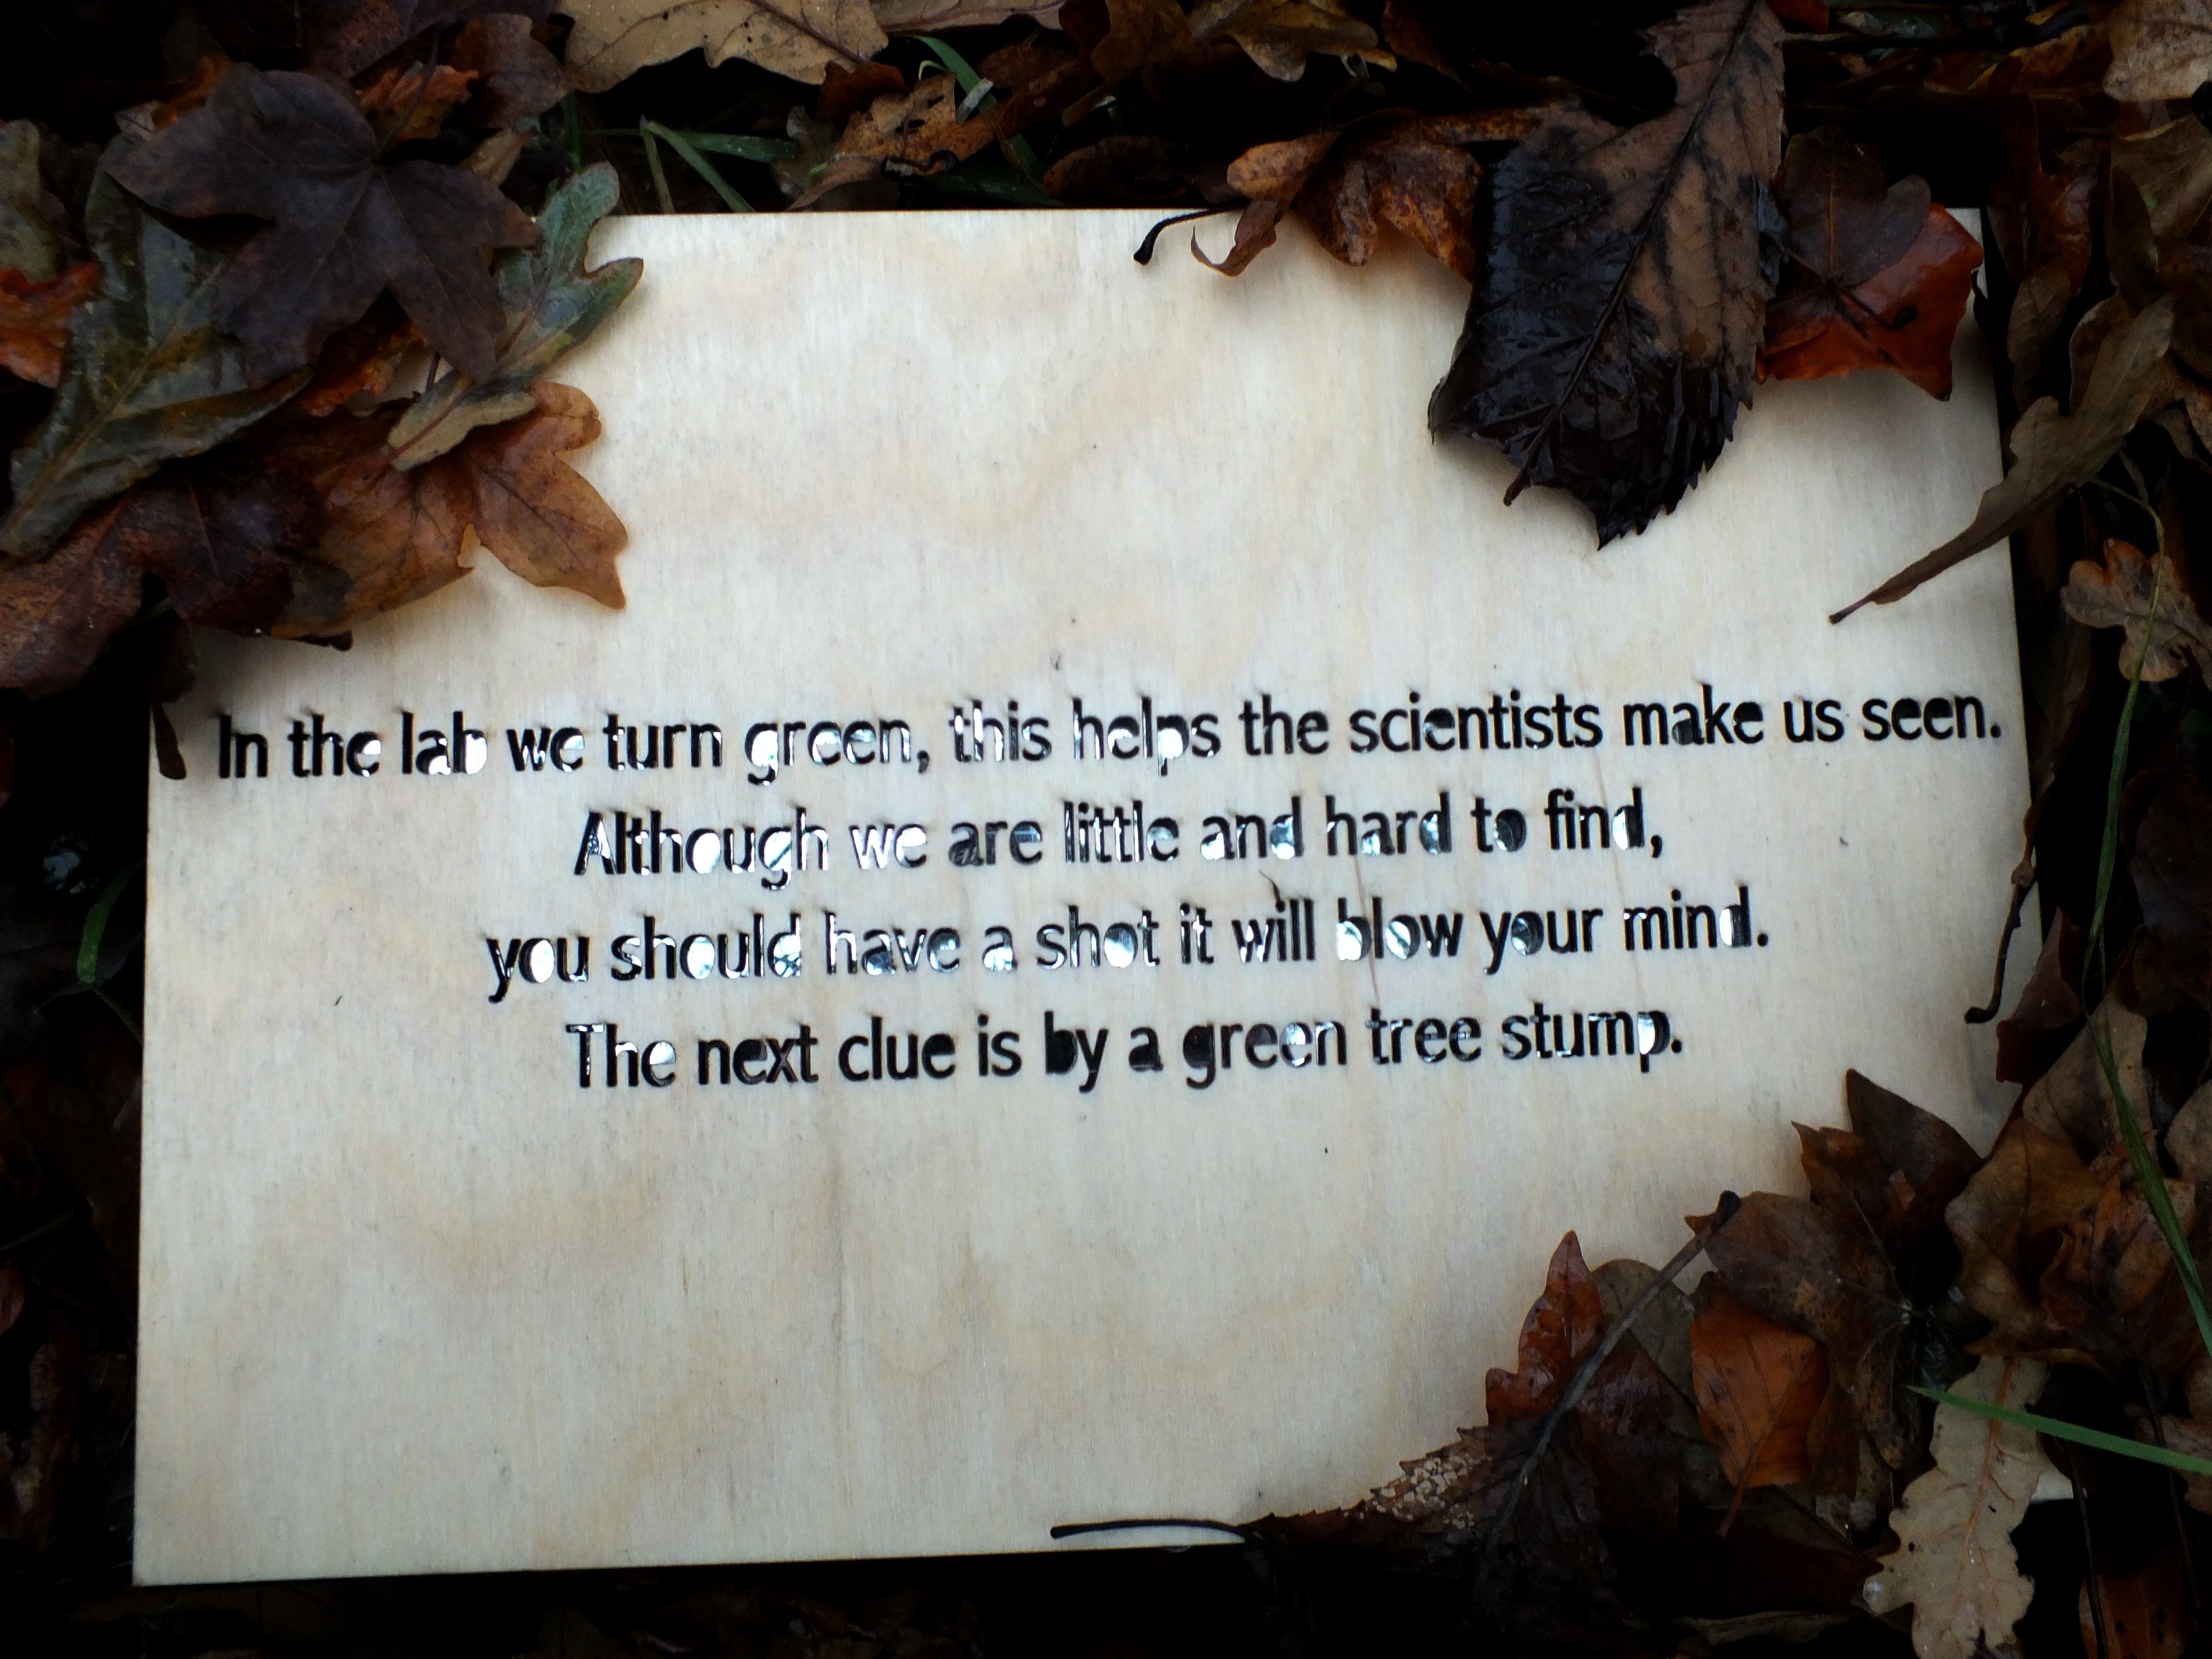 In the lab we turn green, this helps the scientists make us seen.
Although we are little and hard to find,
you should have a shot it will blow your mind.
The next clue is by a green tree stump.